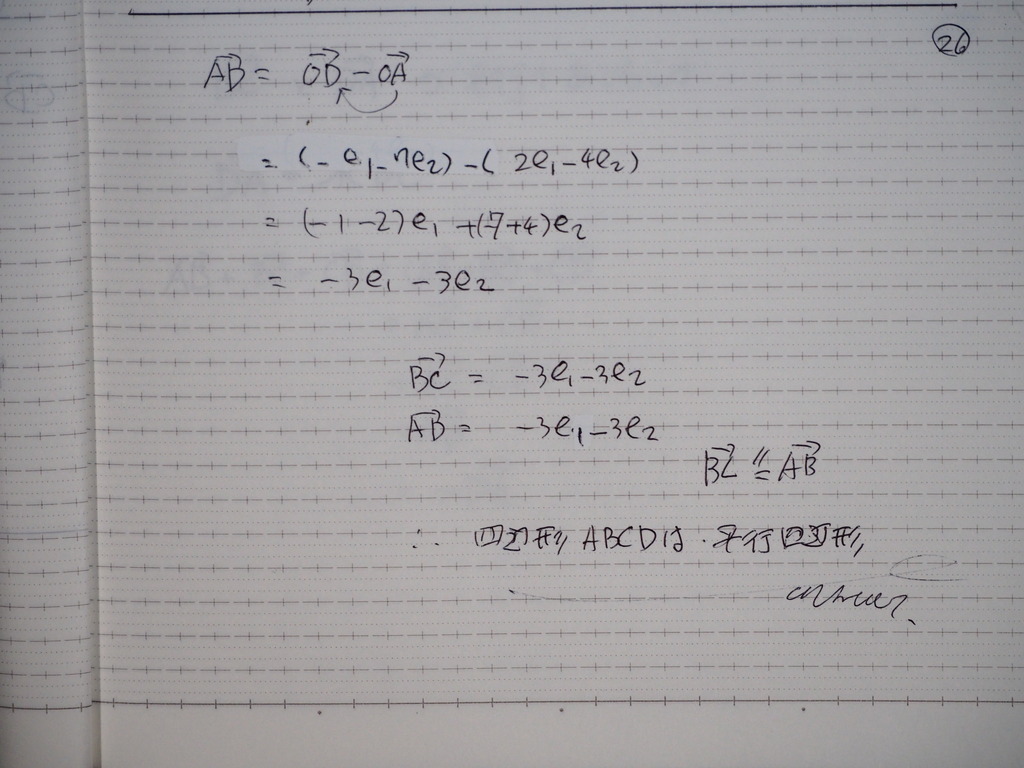 26
AB = OB - OA
= (-e₁-7e₂)-(2e₁-4e₂)
= (-1-2)e₁+(-7+4)e₂
= -3e₁-3e₂
BC = -3e₁-3e₂
AB = -3e₁-3e₂
BC ∥= AB
∴ 四辺形 ABCDは.平行四辺形
answer.